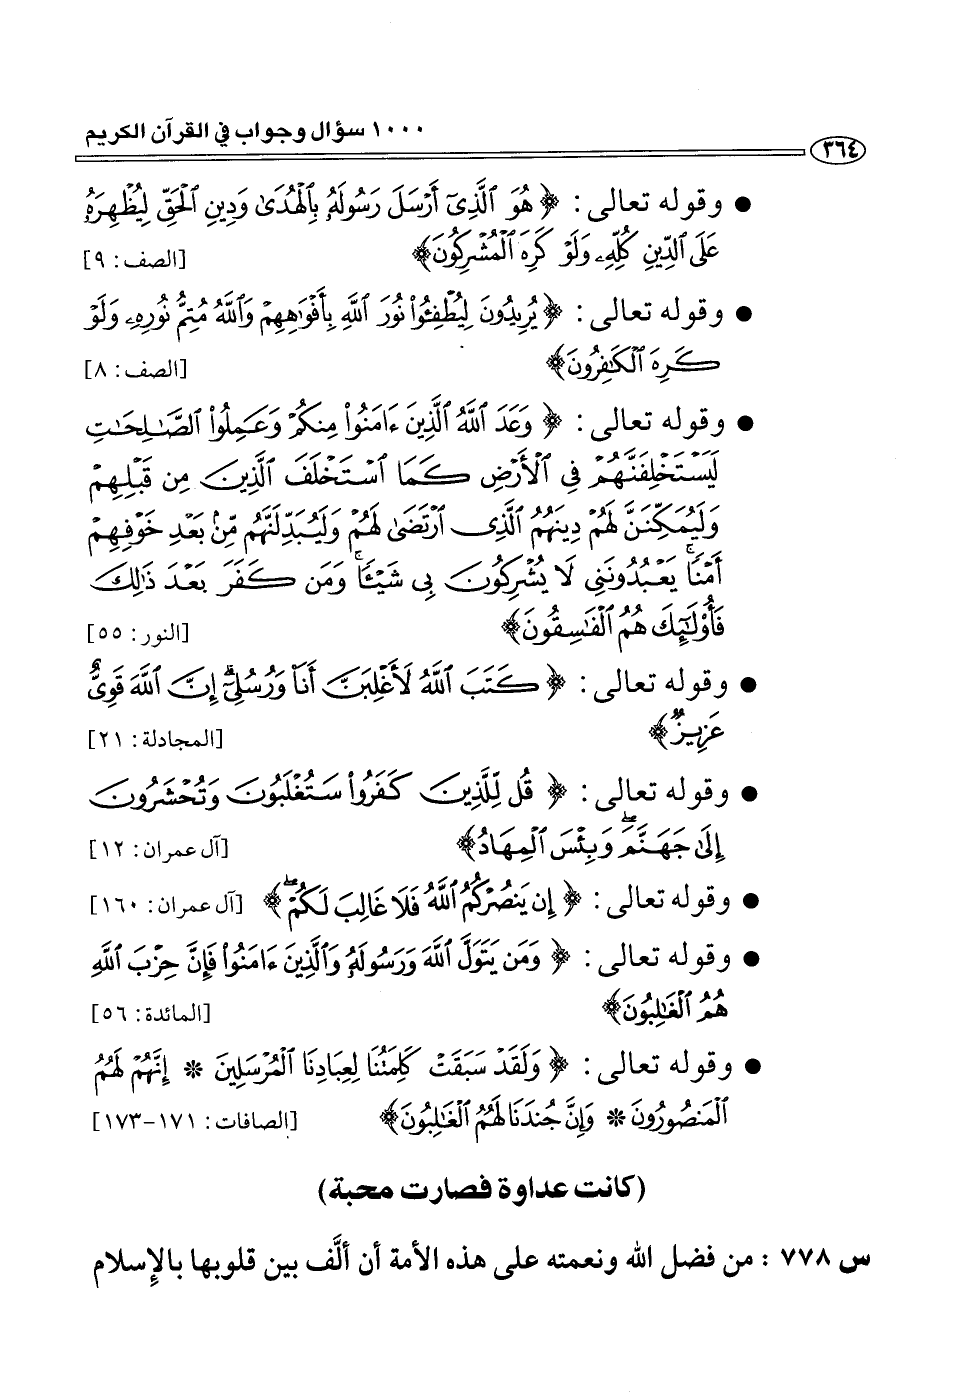 ١٠٠٠ سؤال وجواب في القرآن الكريم
٣٦٤
● وقوله تعالى : ﴿ هُوَ الَّذِىٓ أَرْسَلَ رَسُولَهُۥ بِالْهُدَىٰ وَدِينِ الْحَقِّ لِيُظْهِرَهُۥ
عَلَى الدِّينِ كُلِّهِۦ وَلَوْ كَرِهَ الْمُشْرِكُونَ﴾ [الصف: ٩]
● وقوله تعالى : ﴿ يُرِيدُونَ لِيُطْفِـُٔوا۟ نُورَ اللَّهِ بِأَفْوَٰهِهِمْ وَاللَّهُ مُتِمُّ نُورِهِۦ وَلَوْ
كَرِهَ الْكَٰفِرُونَ﴾ [الصف: ٨]
● وقوله تعالى : ﴿ وَعَدَ اللَّهُ الَّذِينَ ءَامَنُوا۟ مِنكُمْ وَعَمِلُوا۟ الصَّٰلِحَٰتِ
لَيَسْتَخْلِفَنَّهُمْ فِى الْأَرْضِ كَمَا اسْتَخْلَفَ الَّذِينَ مِن قَبْلِهِمْ
وَلَيُمَكِّنَنَّ لَهُمْ دِينَهُمُ الَّذِى ارْتَضَىٰ لَهُمْ وَلَيُبَدِّلَنَّهُم مِّنۢ بَعْدِ خَوْفِهِمْ
أَمْنًا ۚ يَعْبُدُونَنِى لَا يُشْرِكُونَ بِى شَيْـًٔا ۚ وَمَن كَفَرَ بَعْدَ ذَٰلِكَ
فَأُو۟لَٰٓئِكَ هُمُ الْفَٰسِقُونَ﴾ [النور: ٥٥]
● وقوله تعالى : ﴿ كَتَبَ اللَّهُ لَأَغْلِبَنَّ أَنَا۠ وَرُسُلِىٓ ۚ إِنَّ اللَّهَ قَوِىٌّ
عَزِيزٌ﴾ [المجادلة: ٢١]
● وقوله تعالى : ﴿ قُل لِّلَّذِينَ كَفَرُوا۟ سَتُغْلَبُونَ وَتُحْشَرُونَ
إِلَىٰ جَهَنَّمَ ۚ وَبِئْسَ الْمِهَادُ﴾ [آل عمران: ١٢]
● وقوله تعالى : ﴿ إِن يَنصُرْكُمُ اللَّهُ فَلَا غَالِبَ لَكُمْ ۖ﴾ [آل عمران: ١٦٠]
● وقوله تعالى : ﴿ وَمَن يَتَوَلَّ اللَّهَ وَرَسُولَهُۥ وَالَّذِينَ ءَامَنُوا۟ فَإِنَّ حِزْبَ اللَّهِ
هُمُ الْغَٰلِبُونَ﴾ [المائدة: ٥٦]
● وقوله تعالى : ﴿ وَلَقَدْ سَبَقَتْ كَلِمَتُنَا لِعِبَادِنَا الْمُرْسَلِينَ * إِنَّهُمْ لَهُمُ
الْمَنصُورُونَ * وَإِنَّ جُندَنَا لَهُمُ الْغَٰلِبُونَ﴾ [الصافات: ١٧١-١٧٣]
(كانت عداوة فصارت محبة)
س ٧٧٨ : من فضل الله ونعمته على هذه الأمة أن ألَّف بين قلوبها بالإسلام